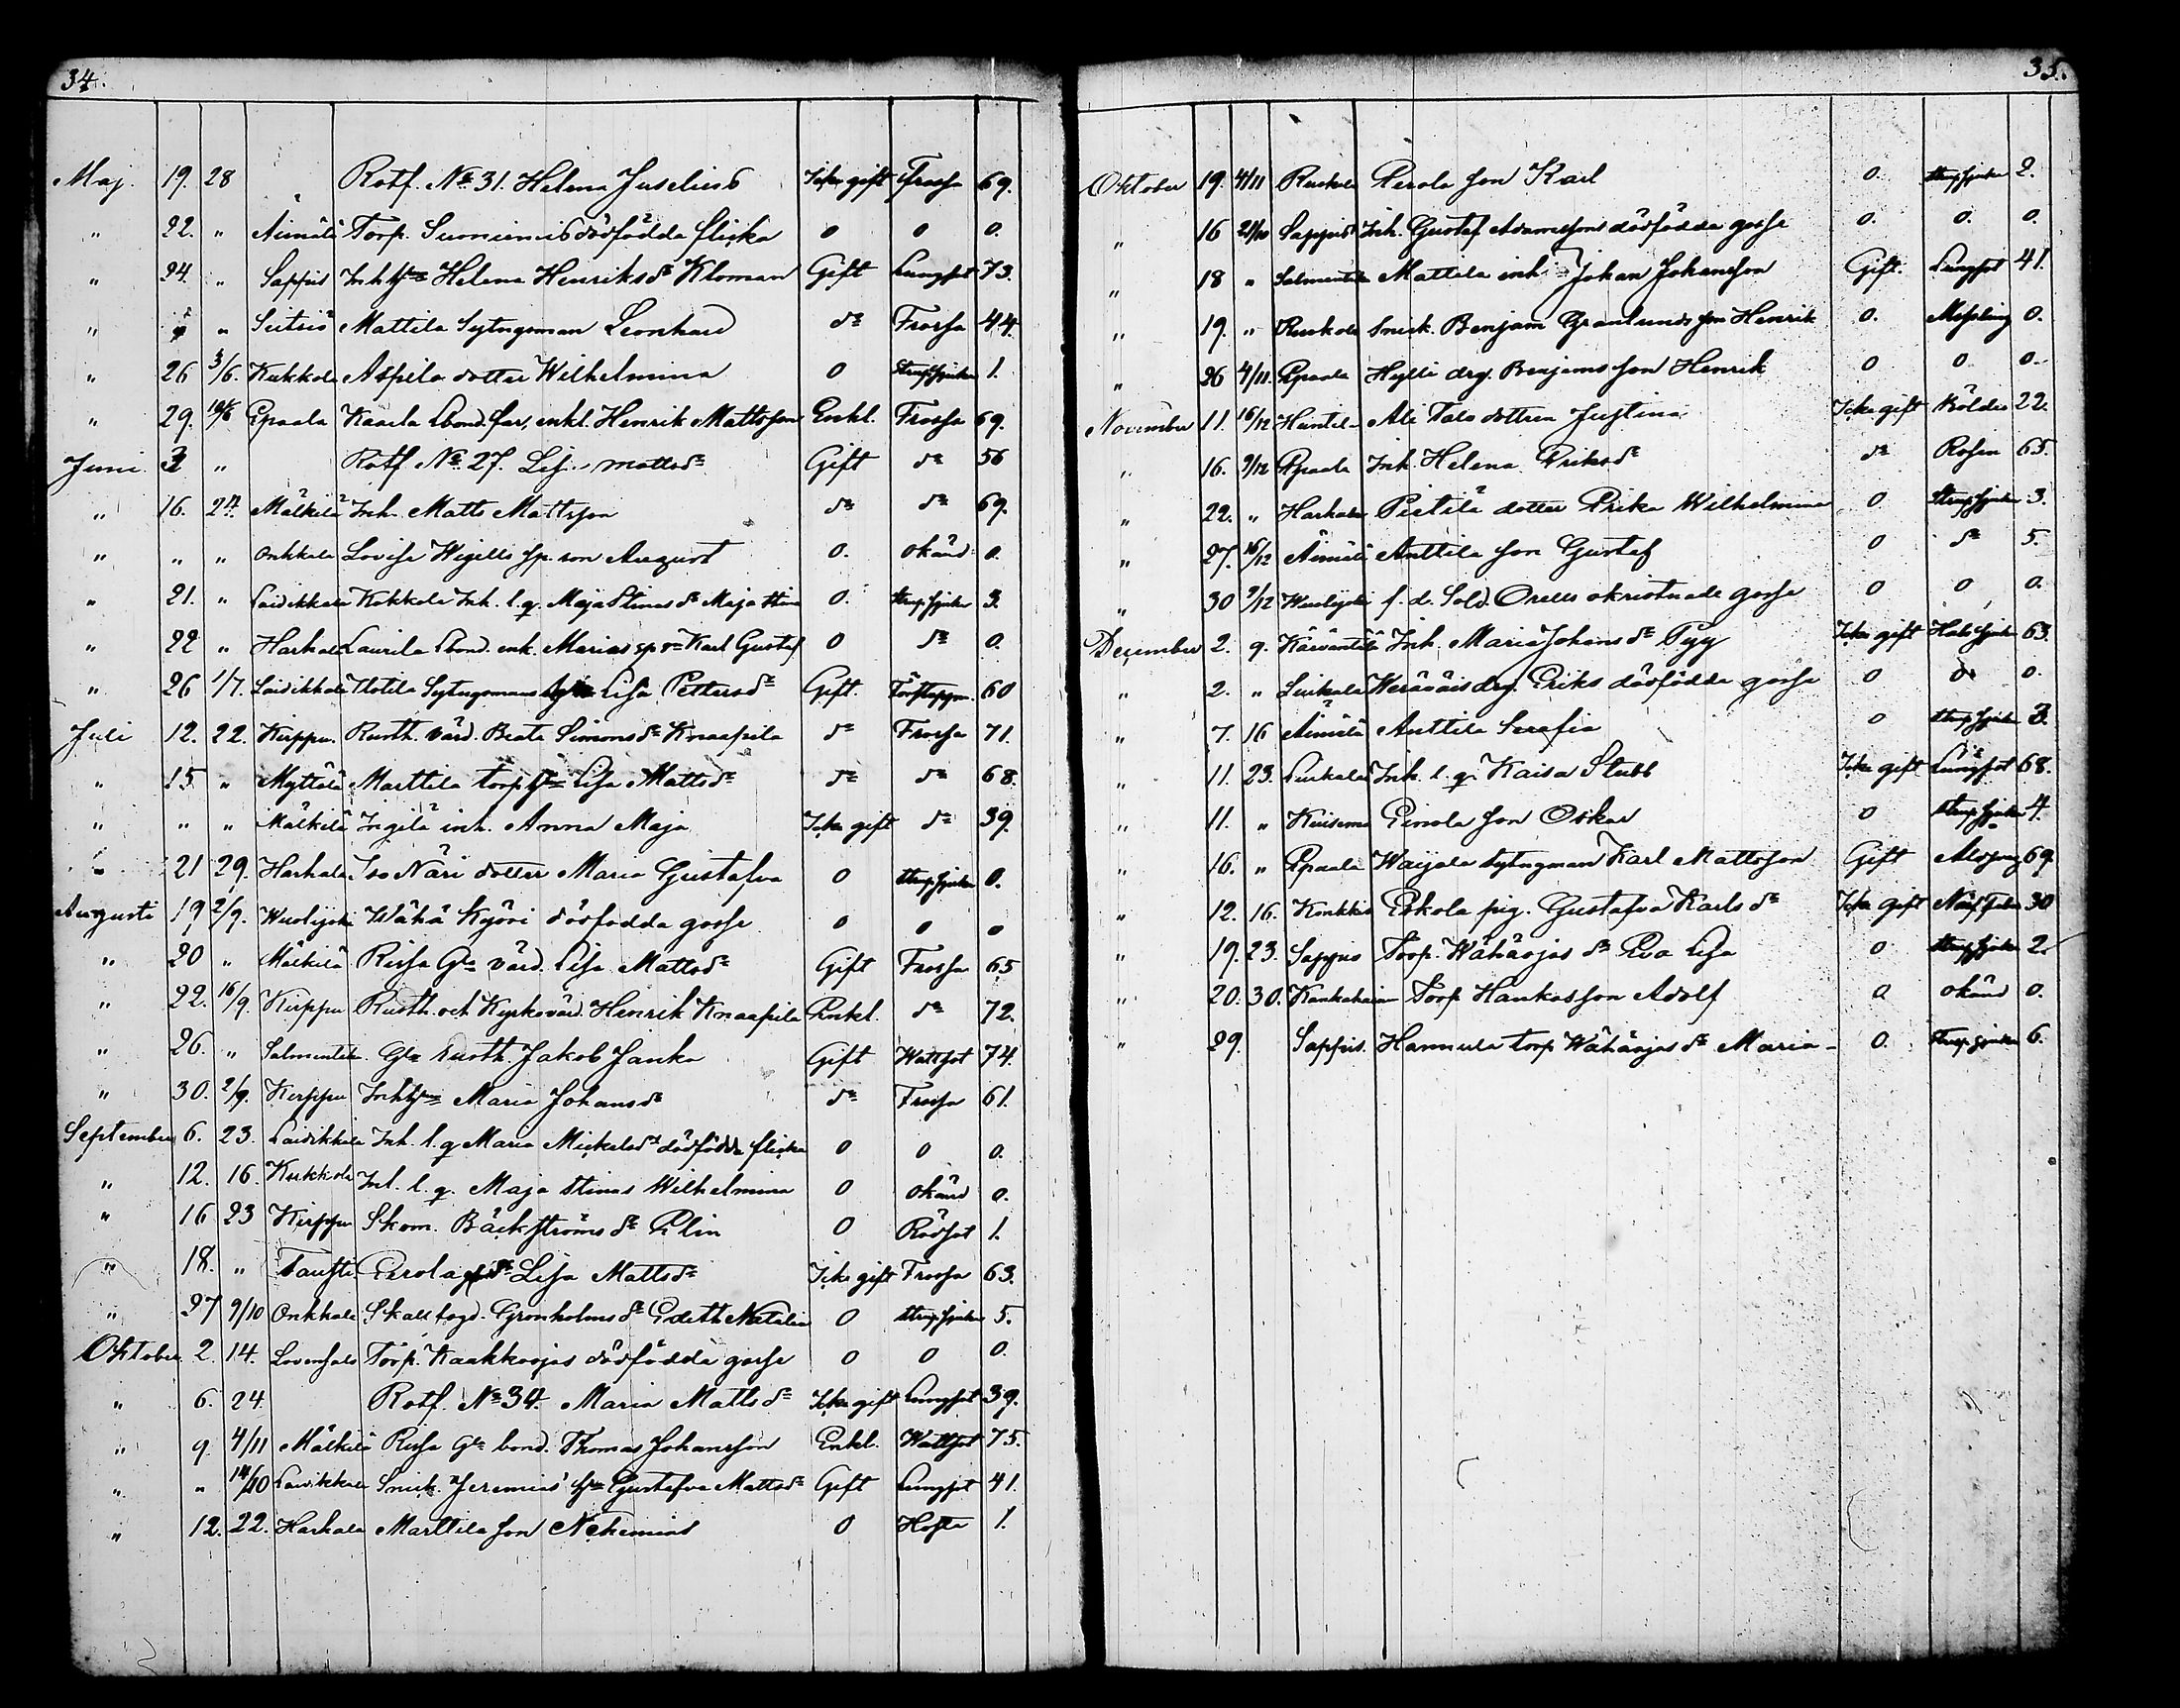 34.
Maj. 19. 28 " Rotf. No 31. Helena Juselius Icke gift Frossa 69.
" 22. " Äimälä Torp. Suoniemis dödfödda flicka 0 0 0.
" 24. " Sappis Inh hu Helena Henriksdr Kloman Gift Lungsot 73.
" " Mattila Sytngsman Leonhard do Frossa 44.
" 26 3/6. Kukkola Aspila dotter Wilhelmina 0 Strupsjuka 1.
" 29. Epaala Kaarla Lbond. far, enkl. Henrik Mattsson Enkl. Frossa 69.
Juni 3 " Rotf No 27. Lisa Mattsdr Gift do 56
" 16. 24. Mälkilä Inh. Matts Mattsson do do 69.
" " " Onkkala Lovisa Wigells sp. son August 0. okänd 0.
" 21. " Laidikkala Kokkala Inh. l. q. Maja Stinas dr Maja Stina 0. Strupsjuka 3.
" 22 " Harhala Laurila Lbond. enk. Marias sp. sn Karl Gustaf 0 do 0.
" 26 1/7. Laidikkala Sytngsmans Lisa Pettersdr Gift. 60
Juli 12. 22. Kirppu. Rusth. värd. Beata Simonsdr Knaapila do Frossa 71.
" 15 " Myttälä Marttila torp. hu Lisa Mattsdr do do 68.
" " " Mälkilä Ingilä inh. Anna Maja Icke gift do 39.
" 21 29. Harhala Iso Näri dotter Maria Gustafva 0 Strupsjuka 0.
Augusti 19 2/9. Wuolijoki Wähä Kyöri dödfödda gosse 0 0 0
" 20 " Mälkilä Rissa Gla värd. Lisa Mattsdr Gift Frossa 65
" 22. 16/9. Kirppu Rusth. och Kyrkovärd. Henrik Knaapila Enkl. do 72.
" 26. " Salmentak. Gla rusth. Jakob Janka Gift Wattsot 74.
" 30. 2/9. Kirppu Inh hu Maria Johansdr do Frossa 61.
September 6. 23. Laidikkala Inh. l. q Maria Mickelsdr dödfödda flicka 0 0 0.
" 12. 16. Kukkola Inh. l. q. Maja Stinas Wilhelmina 0 okänd 0.
" 16 23 Kirppu Skom. Bäckströms dr Elin 0 Rödsot 1.
" 18. " Tausti Eerola Lisa Mattsdr Icke gift Frossa 63.
" 27 9/10 Onkkala Skallfogd. Grönholms dr Edith Natalia 0 Strupsjuka 5.
Oktober 2. 14. Torp. Kaakkoojas dödfödda gosse 0 0 0.
" 6. 24. Rotf. No 34. Maria Mattsdr Icke gift Lungsot 39.
" 9. 4/11 Mälkilä Rissa Gla bond. Thomas Johansson Enkl. Wattsot 75.
" " 14/10 Laidikkala Smick. Jeremias' hu Gustafva Mattsdr Gift Lungsot 41.
" 12. 22. Harhala Marttila son Nehemias 0 Hosta 1.
35.
Oktober 19. 4/11 Ruokola Eerola son Karl 0. Strupsjuka 2.
" 16 21/10 Sappis Inh. Gustaf Adamssons dödfödda gosse 0. 0. 0.
" 18 " Salmentaka Mattila inh. Johan Johansson Gift. Lungsot 41.
" 19. " Ruokola Smick. Benjam Granlunds son Henrik 0. Messling 0.
" 26 4/11. Epaala Hylli drg. Benjams son Henrik 0 0 0.
November 11. 16/12 Huntila Ali Talo dottren Justina Icke gift 22.
" 16. 9/12 Epaala Inh. Helena Eriksdr do Rosen 65.
" 22. " Harhala Pietilä dotter Erika Wilhelmina 0 Strupsjuka 3.
" 27. 16/12 Äimälä Anttila son Gustaf 0 do 5.
" 30 9/12 Wuolijoki f. d. Sold. Orells okristnade gosse 0 0 0.
December 2. 9. Käiväntälä Inh. Maria Johansdr Pyy Icke gift Halssjuka 63.
" 2. " Luikala drg. Eriks dödfödda gosse 0 0 0.
" 7. 16 Äimälä Anttila Serafia 0 Strupsjuka 3.
" 11. 23. Luikala Inh. l. q. Kaisa Stubb Icke gift Lungsot 68.
" 11. " Kuisema Einola son Oskar 0 Strupsjuka 4.
" 16. " Epaala Waijala Sytngman Karl Mattsson Gift 69.
" 12. 16. Eskola pig. Gustafva Karlsdr Icke gift Nerffeber 30
" 19. 23. Sappis Torp. Wähäojas dr Eva Lisa 0 Strupsjuka 2.
" 20. 30. Torp. Haukas son Adolf 0 okänd 0.
" 29. Sappis. Hannula torp Wähäojas dr Maria 0. Strupsjuka 6.